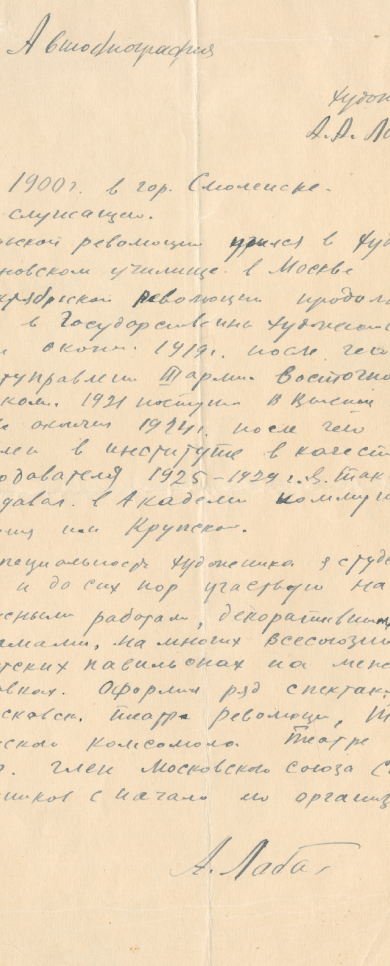 Автобиография
Худож
А.А. Ла
1900г. в гор. Смоленске.
служащи.
ской революции учился в Худ
новском училище в Москве
ктябрьской революции продол
в Государствень Художест
оконч. 1919г. после чег
туправлени III арми Восточно
ком. 1921 поступи в Высши
окончил 1924г. после чего
лен в институте в качест
одавателя 1925-1929 г.г. Так
давал в Академи коммун
ния им Крупской.
пециальность художника я студе
и до сих пор участвую на
сным работам, декоративным
амами, на многих всесоюзн
тских павильонах на меж
вках. Оформил ряд спектак
сковск. театр Революци, Т
ского комсомола Театре
г. член Московского союза С
ников с начало по организ
А. Лаба